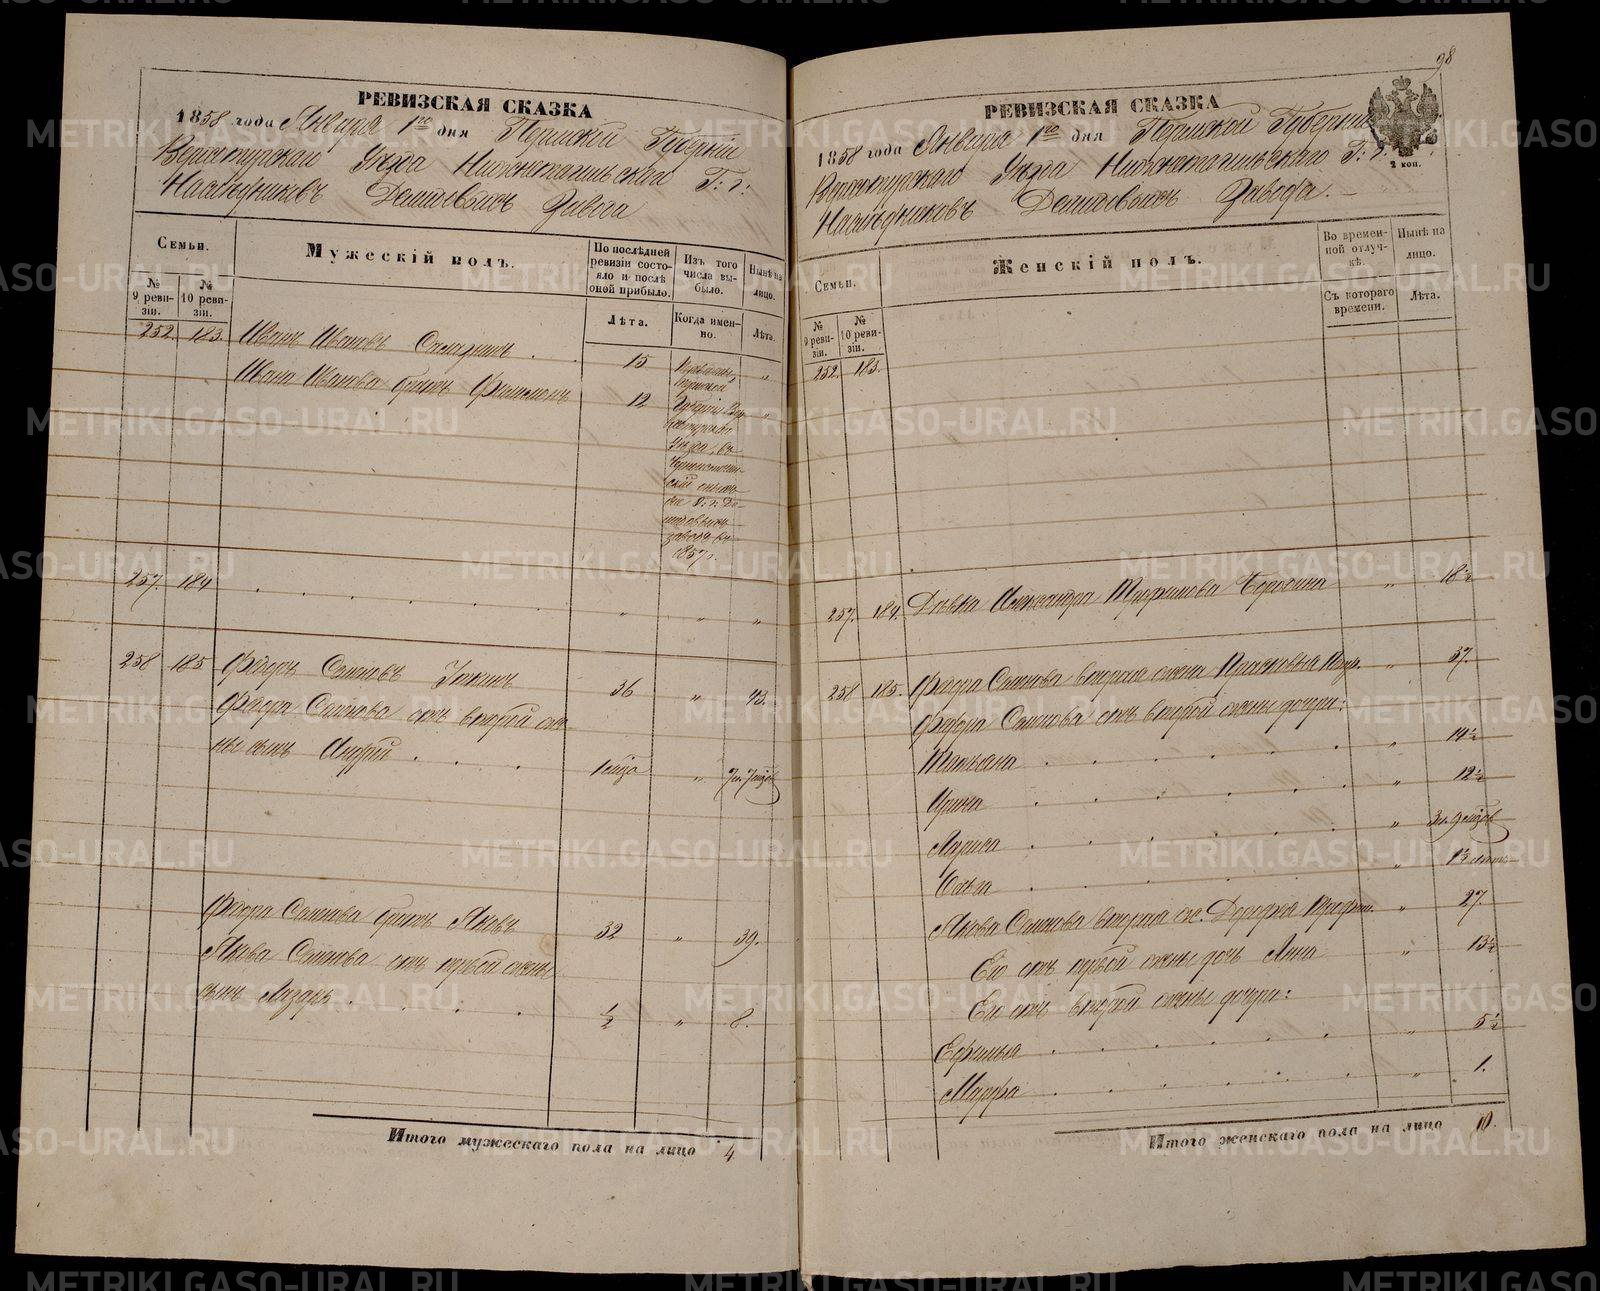 РЕВИЗСКАЯ СКАЗКА
1858 года Января 1го дня Пермской Губерніи
Верхотурскаго Уѣзда Нижнетагильскаго Г: г:
Наслѣдниковъ Демидовыхъ Завода
Семьи.
Мужескій полъ.
По послѣдней ревизіи состояло и послѣ оной прибыло.
Изъ того числа выбыло.
Нынѣ на лицо.
№ 9 ревизіи.
№ 10 ревизіи.
Лѣта.
Когда именно.
Лѣта.
252. 183. Иванъ Ивановъ 15 "
Ивана Иванова братъ Филимонъ 12 "
Пермской
Губерніи Вер
хотурскаго
Уѣзда, въ
Черноисточин
скій
Г: г: Де
мидовыхъ
заводъ въ
1857 г.
257. 184 " " "
258 185 Федоръ Семеновъ 36 " 43.
Федора Семенова отъ второй же
ны сынъ Андрей 1 мѣсяца "
Федора Семенова братъ Яковъ 32 " 39.
Якова Семенова отъ первой жены
сынъ Лазарь ½ " 8.
Итого мужескаго пола на лицо 4
98
РЕВИЗСКАЯ СКАЗКА
2 коп.
1858 года Января 1го дня Пермской Губерніи
Верхотурскаго Уѣзда Нижнетагильскаго Г: г:
Наслѣдниковъ Демидовыхъ Завода.
Семьи.
Женскій полъ.
Во временной отлучкѣ.
Нынѣ на лицо.
№ 9 ревизіи.
№ 10 ревизіи.
Съ котораго времени.
Лѣта.
252. 183.
257. 184. Дѣвка Александра Бородина " 18½
258 185. Федора Семенова вторая жена Прасковья " 37.
Федора Семенова отъ второй жены дочери:
Татьяна " 14½
Ирина " 12½
Лариса " 3 г. 9 мѣсяцов
Ольга " 1½
Якова Семенова вторая ж. " 27
Его отъ первой жены дочь Анна " 13½
Его отъ второй жены дочери:
Ефимья " 5½
Марфа " 1.
Итого женскаго пола на лицо 10.
METRIKI.GASO-URAL.RU